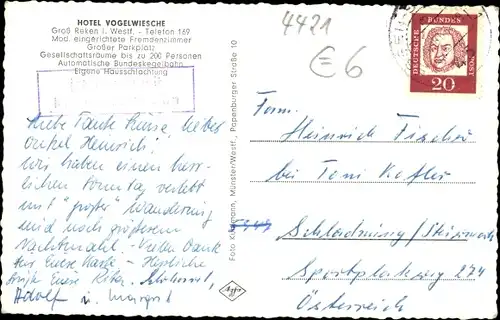 HOTEL VOGELWIESCHE
Groß Reken i. Westf. - Telefon 169
Mod. eingerichtete Fremdenzimmer
Großer Parkplatz
Gesellschaftsräume bis zu 200 Personen
Automatische Bundeskegelbahn
Eigene Hausschlachtung
4421
€6
DEUTSCHE BUNDESPOST
20
Liebe Tante
Onkel Heinrich!
Wir haben einen herr-
lichen Sonntag verlebt
mit "großer" Wanderung
und noch größerem
Nachtmahl. - Vielen Dank
für Eure Karte - Herzliche
Grüße Eure
Adolf u. Margret
Foto Kleimann, Münster/Westf., Papenburger Straße 10
Agfa
Fam.
Heinrich Fischer
bei Toni
Schladming / Steiermark
Sportplatzweg 274
Österreich